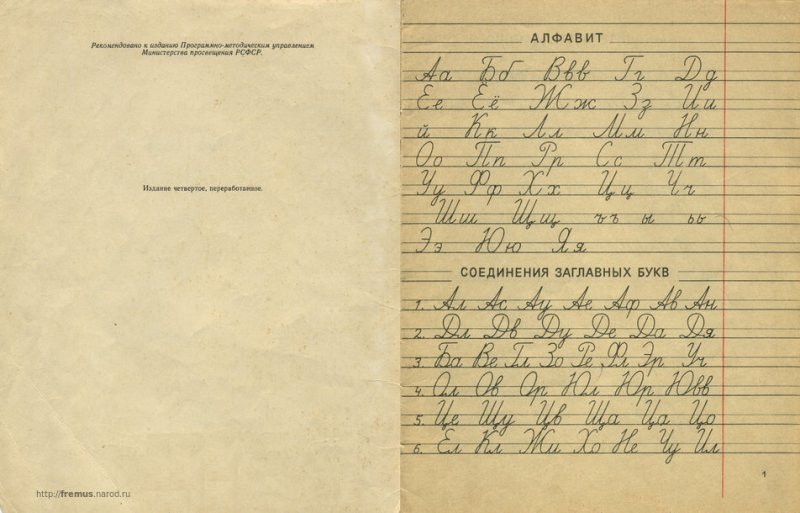 Рекомендовано к изданию Программно-методическим управлением
Министерства просвещения РСФСР.
Издание четвертое, переработанное.
http://fremus.narod.ru
АЛФАВИТ
Аа Бб Ввв Гг Дд
Ее Ёё Жж Зз Ии
й Кк Лл Мм Нн
Оо Пп Рр Сс Тт
Уу Фф Хх Цц Чч
Шш Щщ ъъ ы ьь
Ээ Юю Яя
СОЕДИНЕНИЯ ЗАГЛАВНЫХ БУКВ
1. Ал Ас Ау Ае Аф Ав Ан
2. Дл Дв Ду Де Да Дя
3. Ба Ве Гл Зо Ре Фл Эр Уч
4. Ол Ов Ор Юл Юр Ювв
5. Це Щу Цв Ща Ца Цо
6. Ел Кл Жи Хо Не Чу Ил
1